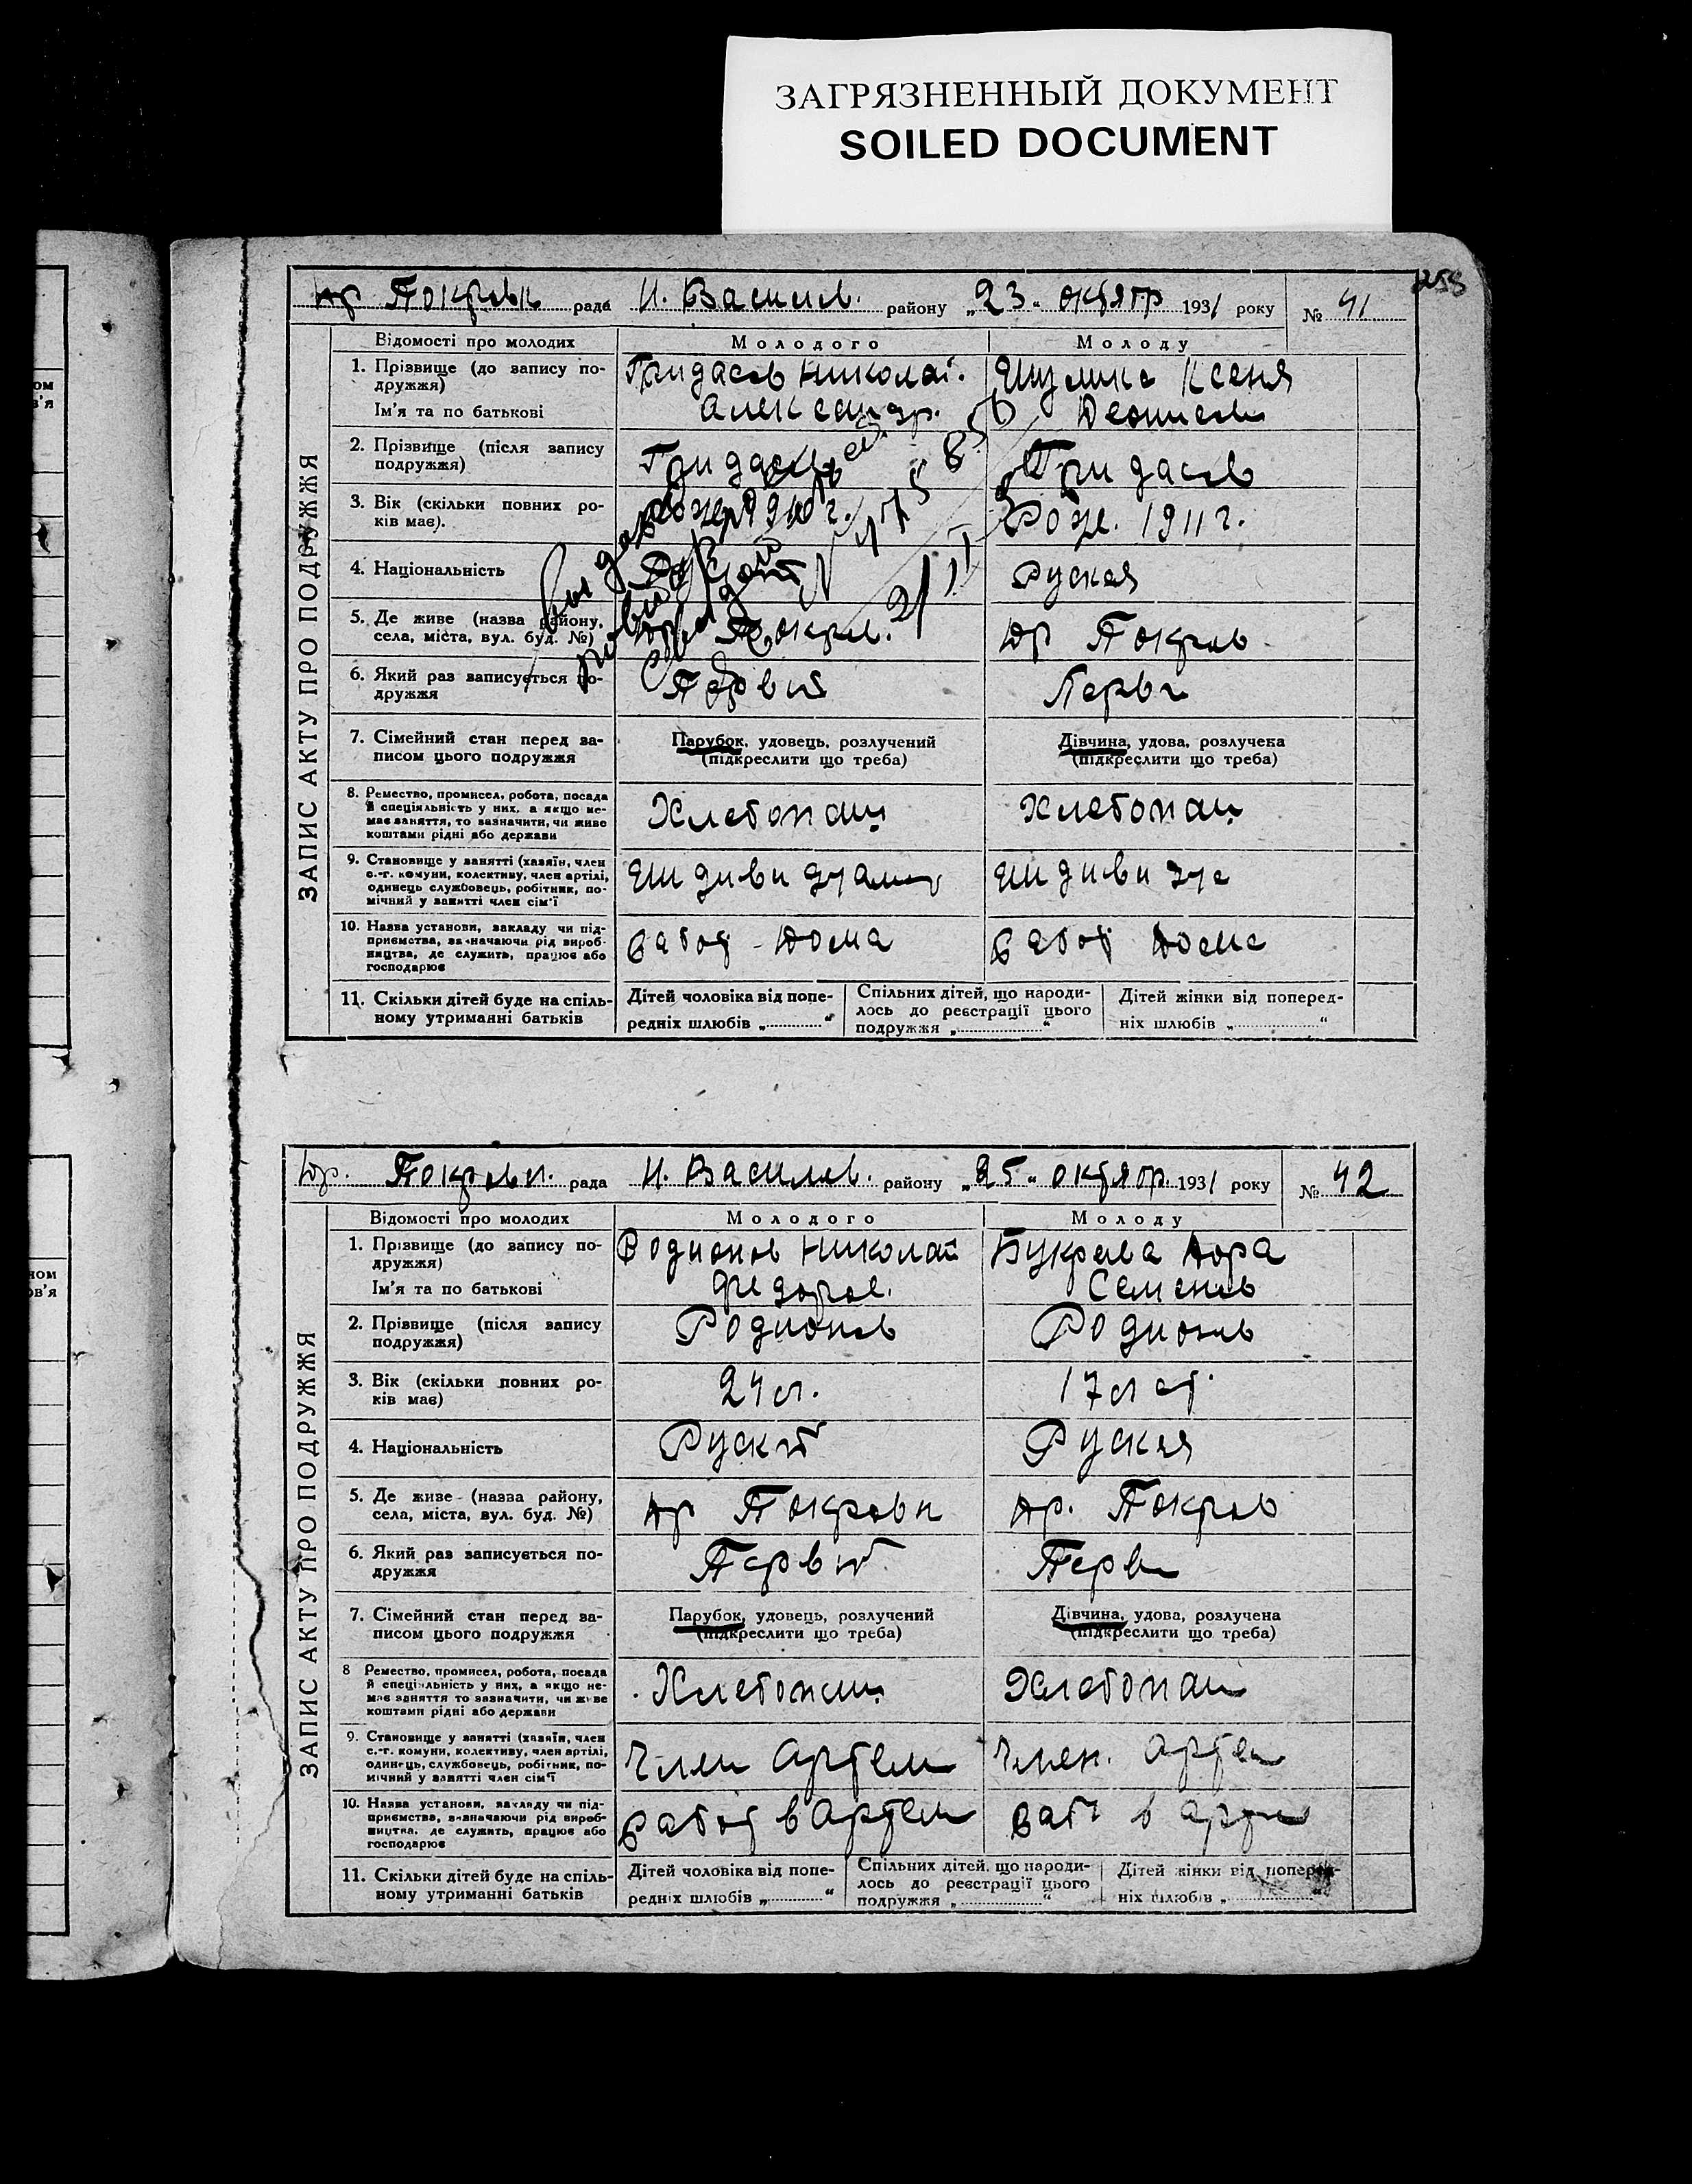 ЗАГРЯЗНЕННЫЙ ДОКУМЕНТ
SOILED DOCUMENT
253
Юр Покровк рада Н. Василев. району „23" октябр 1931 року № 41
ЗАПИС АКТУ ПРО ПОДРУЖЖЯ
Відомості про молодих Молодого Молоду
1. Прізвище (до запису по-
дружжя)
Ім'я та по батькові
Гридасов Николай Ксеня
Александр.
2. Прізвище (після запису
подружжя)
Гридасов Гридасов
3. Вік (скільки повних ро-
ків має).
1910 г. Рожд. 1911 г.
4. Національність
Руская
5. Де живе (назва району,
села, міста, вул. буд. №)
Покров. Юр Покров
6. Який раз записується по-
дружжя
Первий Перви
7. Сімейний стан перед за-
писом цього подружжя
Парубок, удовець, розлучений
(підкреслити що треба)
Дівчина, удова, розлучена
(підкреслити що треба)
8. Ремество, промисел, робота, посада
й спеціяльність у них, а якщо не-
має заняття, то зазначити, чи живе
коштами рідні або держави
Хлебопаш Хлебопаш
9. Становище у занятті (хазяїн, член
с.-г. комуни, колективу, член артілі,
одинець службовець, робітник, по-
мічний у занятті член сім'ї
10. Назва установи, закладу чи під-
приємства, зазначаючи рід вироб-
ництва, де служить, працює або
господарює
Работ - дома Работ дома
11. Скільки дітей буде на спіль-
ному утриманні батьків
Дітей чоловіка від попе-
редніх шлюбів „ “
Спільних дітей, що народи-
лось до реєстрації цього
подружжя „ “
Дітей жінки від поперед-
ніх шлюбів „ “
Юр. Покровк. рада Н. Василев. району „25" октябр. 1931 року № 42
ЗАПИС АКТУ ПРО ПОДРУЖЖЯ
Відомості про молодих Молодого Молоду
1. Прізвище (до запису по-
дружжя)
Ім'я та по батькові
Родионов Николай Букрева Дора
Федоров. Семенов
2. Прізвище (після запису
подружжя)
Родионов Родионов
3. Вік (скільки повних ро-
ків має)
24 л. 17 лет.
4. Національність
Руский Руская
5. Де живе (назва району,
села, міста, вул. буд. №)
Юр Покровк Юр. Покров
6. Який раз записується по-
дружжя
Первий Перви
7. Сімейний стан перед за-
писом цього подружжя
Парубок, удовець, розлучений
(підкреслити що треба)
Дівчина, удова, розлучена
(підкреслити що треба)
8 Ремество, промисел, робота, посада
й спеціяльність у них, а якщо не-
має заняття то зазначити, чи живе
коштами рідні або держави
Хлебопаш Хлебопаш
9. Становище у занятті (хазяїн, член
с.-г. комуни, колективу, член артілі,
одинець, службовець, робітник, по-
мічний у занятті член сім'ї
Член Артели Член. Арте
10. Назва установи, закладу чи під-
приємства, зазначаючи рід вироб-
ництва, де служить, працює або
господарює
Работ в Артели Раб. в арте
11. Скільки дітей буде на спіль-
ному утриманні батьків
Дітей чоловіка від попе-
редніх шлюбів „ “
Спільних дітей, що народи-
лось до реєстрації цього
подружжя „ “
Дітей жінки від поперед-
ніх шлюбів „ “